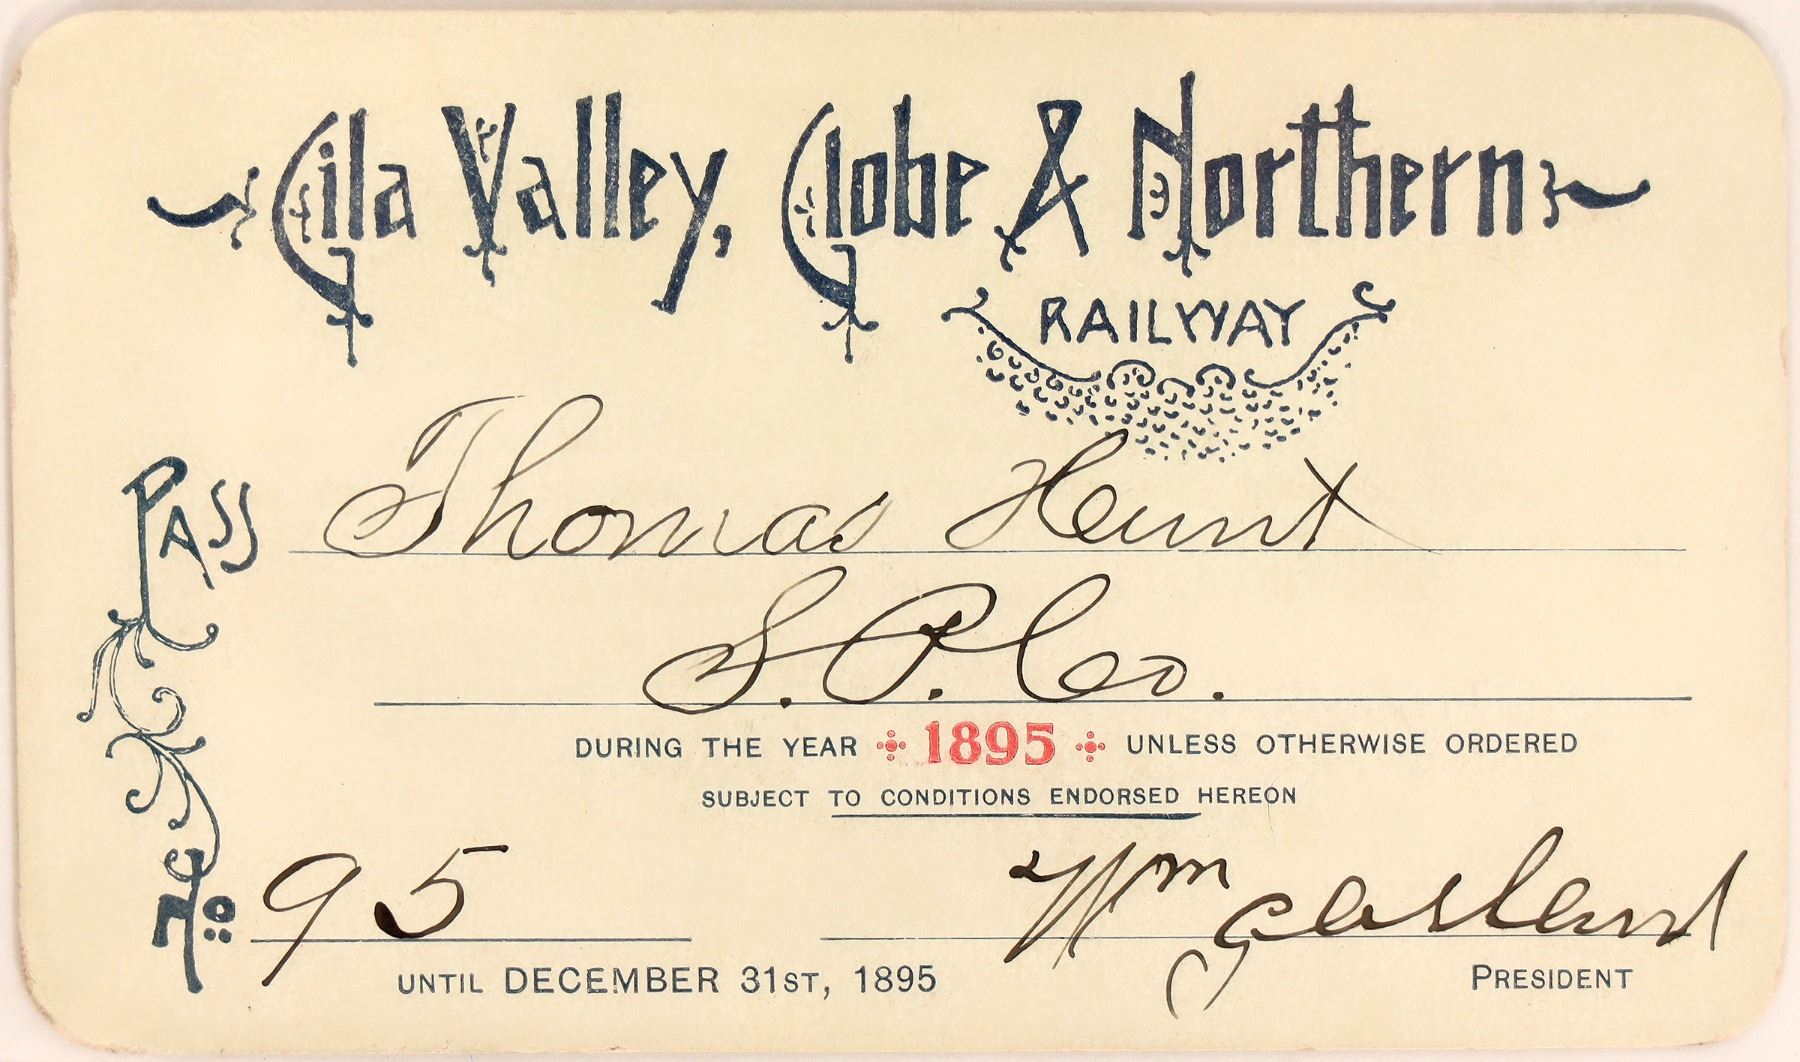 Gila Valley, Globe & Northern
RAILWAY
PASS Thomas Hunt
S. P. Co.
DURING THE YEAR 1895 UNLESS OTHERWISE ORDERED
SUBJECT TO CONDITIONS ENDORSED HEREON
No 95 Wm Garland
UNTIL DECEMBER 31ST, 1895 PRESIDENT